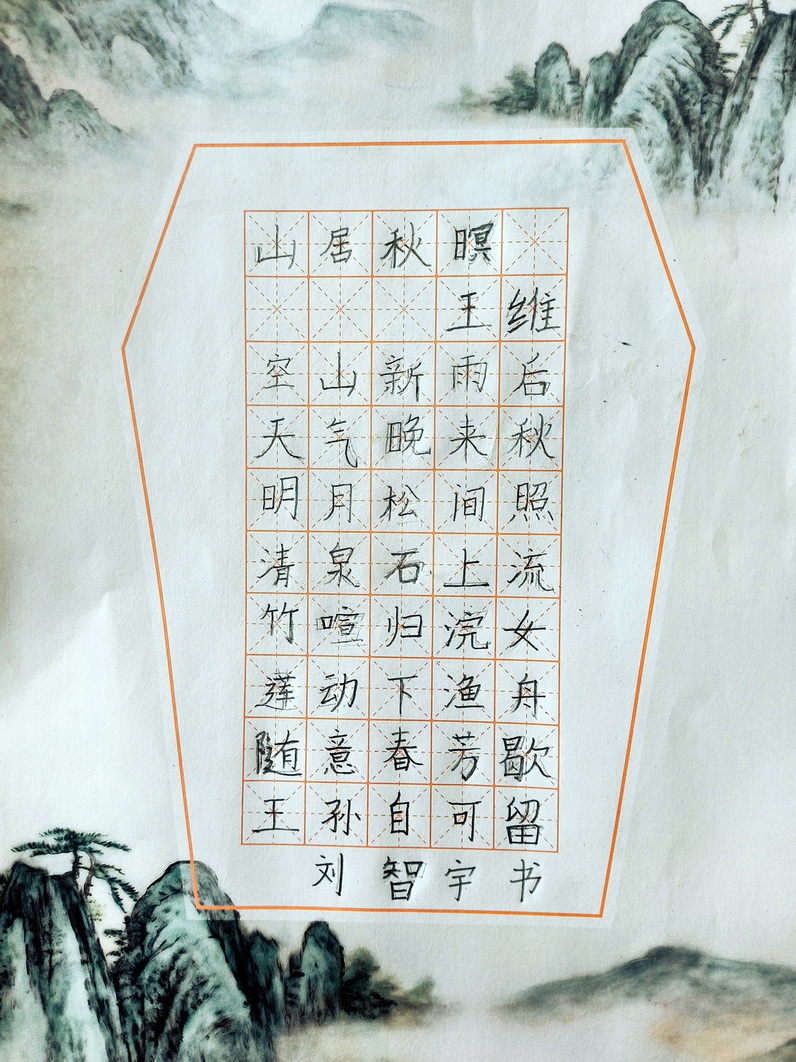 山居秋暝
王维
空山新雨后
天气晚来秋
明月松间照
清泉石上流
竹喧归浣女
莲动下渔舟
随意春芳歇
王孙自可留
刘智宇书